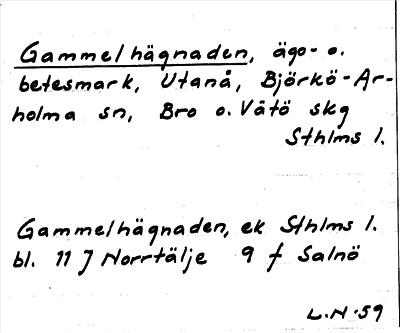 Gammelhägnaden, ägo- o.
betesmark, Utanå, Björkö-Ar-
holma sn, Bro o. Vätö skg
Sthlms l.
Gammelhägnaden, ek Sthlms l.
bl. 11 J Norrtälje 9 f Salnö
L.N-59